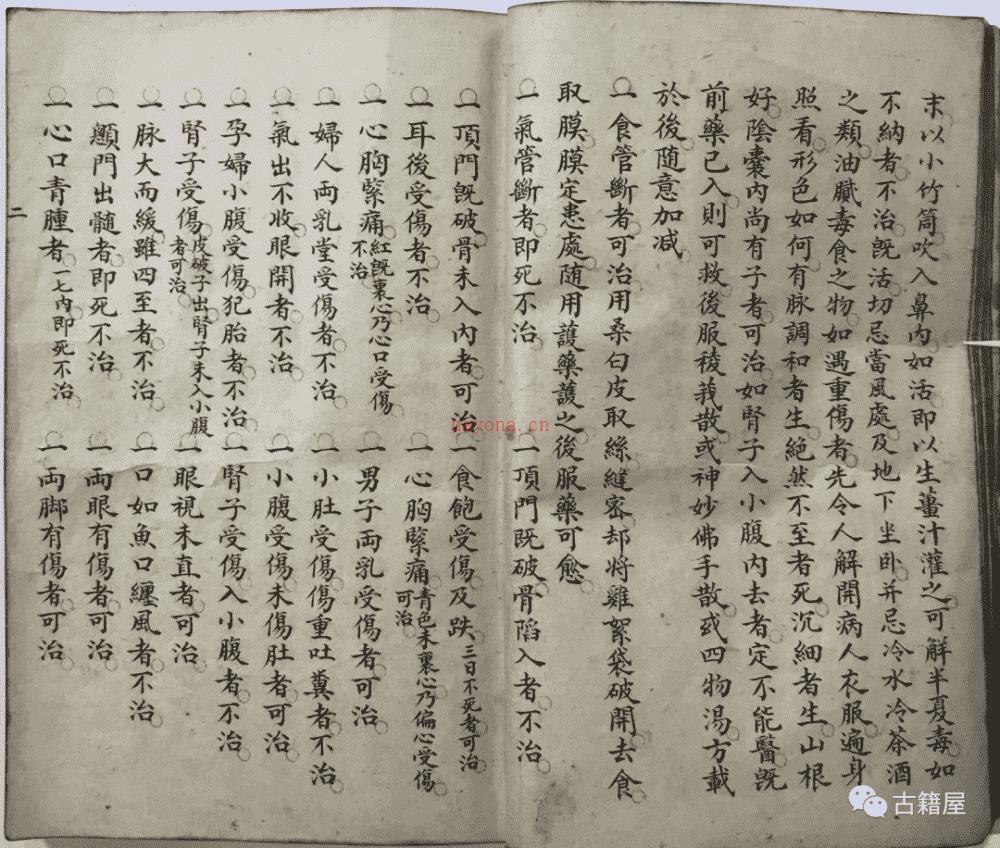 末以小竹筒吹入鼻內如活即以生薑汁灌之可解半夏毒如
不納者不治旣活切忌當風處及地下坐卧并忌冷水冷茶酒
之類油膩毒食之物如遇重傷者先令人解開病人衣服遍身
照看形色如何有脉調和者生絕然不至者死沉細者生山根
好陰囊內尚有子者可治如腎子入小腹內去者定不能醫旣
前藥已入則可救後服稜莪散或神妙佛手散或四物湯方載
於後随意加减
一食管斷者可治用桑白皮取絲縫密却將雞絮袋破開去食
取膜膜定患處随用護藥護之後服藥可愈
一氣管斷者即死不治 一頂門既破骨陷入者不治
一頂門旣破骨未入內者可治 一食飽受傷及跌三日不死者可治
一耳後受傷者不治 一心胸緊痛青色未裹心乃偏心受傷可治
一心胸緊痛紅旣裹心乃心口受傷不治 一男子両乳受傷者可治
一婦人両乳堂受傷者不治 一小肚受傷傷重吐糞者不治
一氣出不收眼開者不治 一小腹受傷未傷肚者可治
一孕婦小腹受傷犯胎者不治 一腎子受傷入小腹者不治
一腎子受傷皮破子出腎子未入小腹者可治 一眼視未直者可治
一脉大而緩雖四至者不治 一口如魚口纏風者不治
一顖門出髓者即死不治 一両眼有傷者可治
一心口青腫者一七內即死不治 一両脚有傷者可治
二
nayona.cn
古籍屋